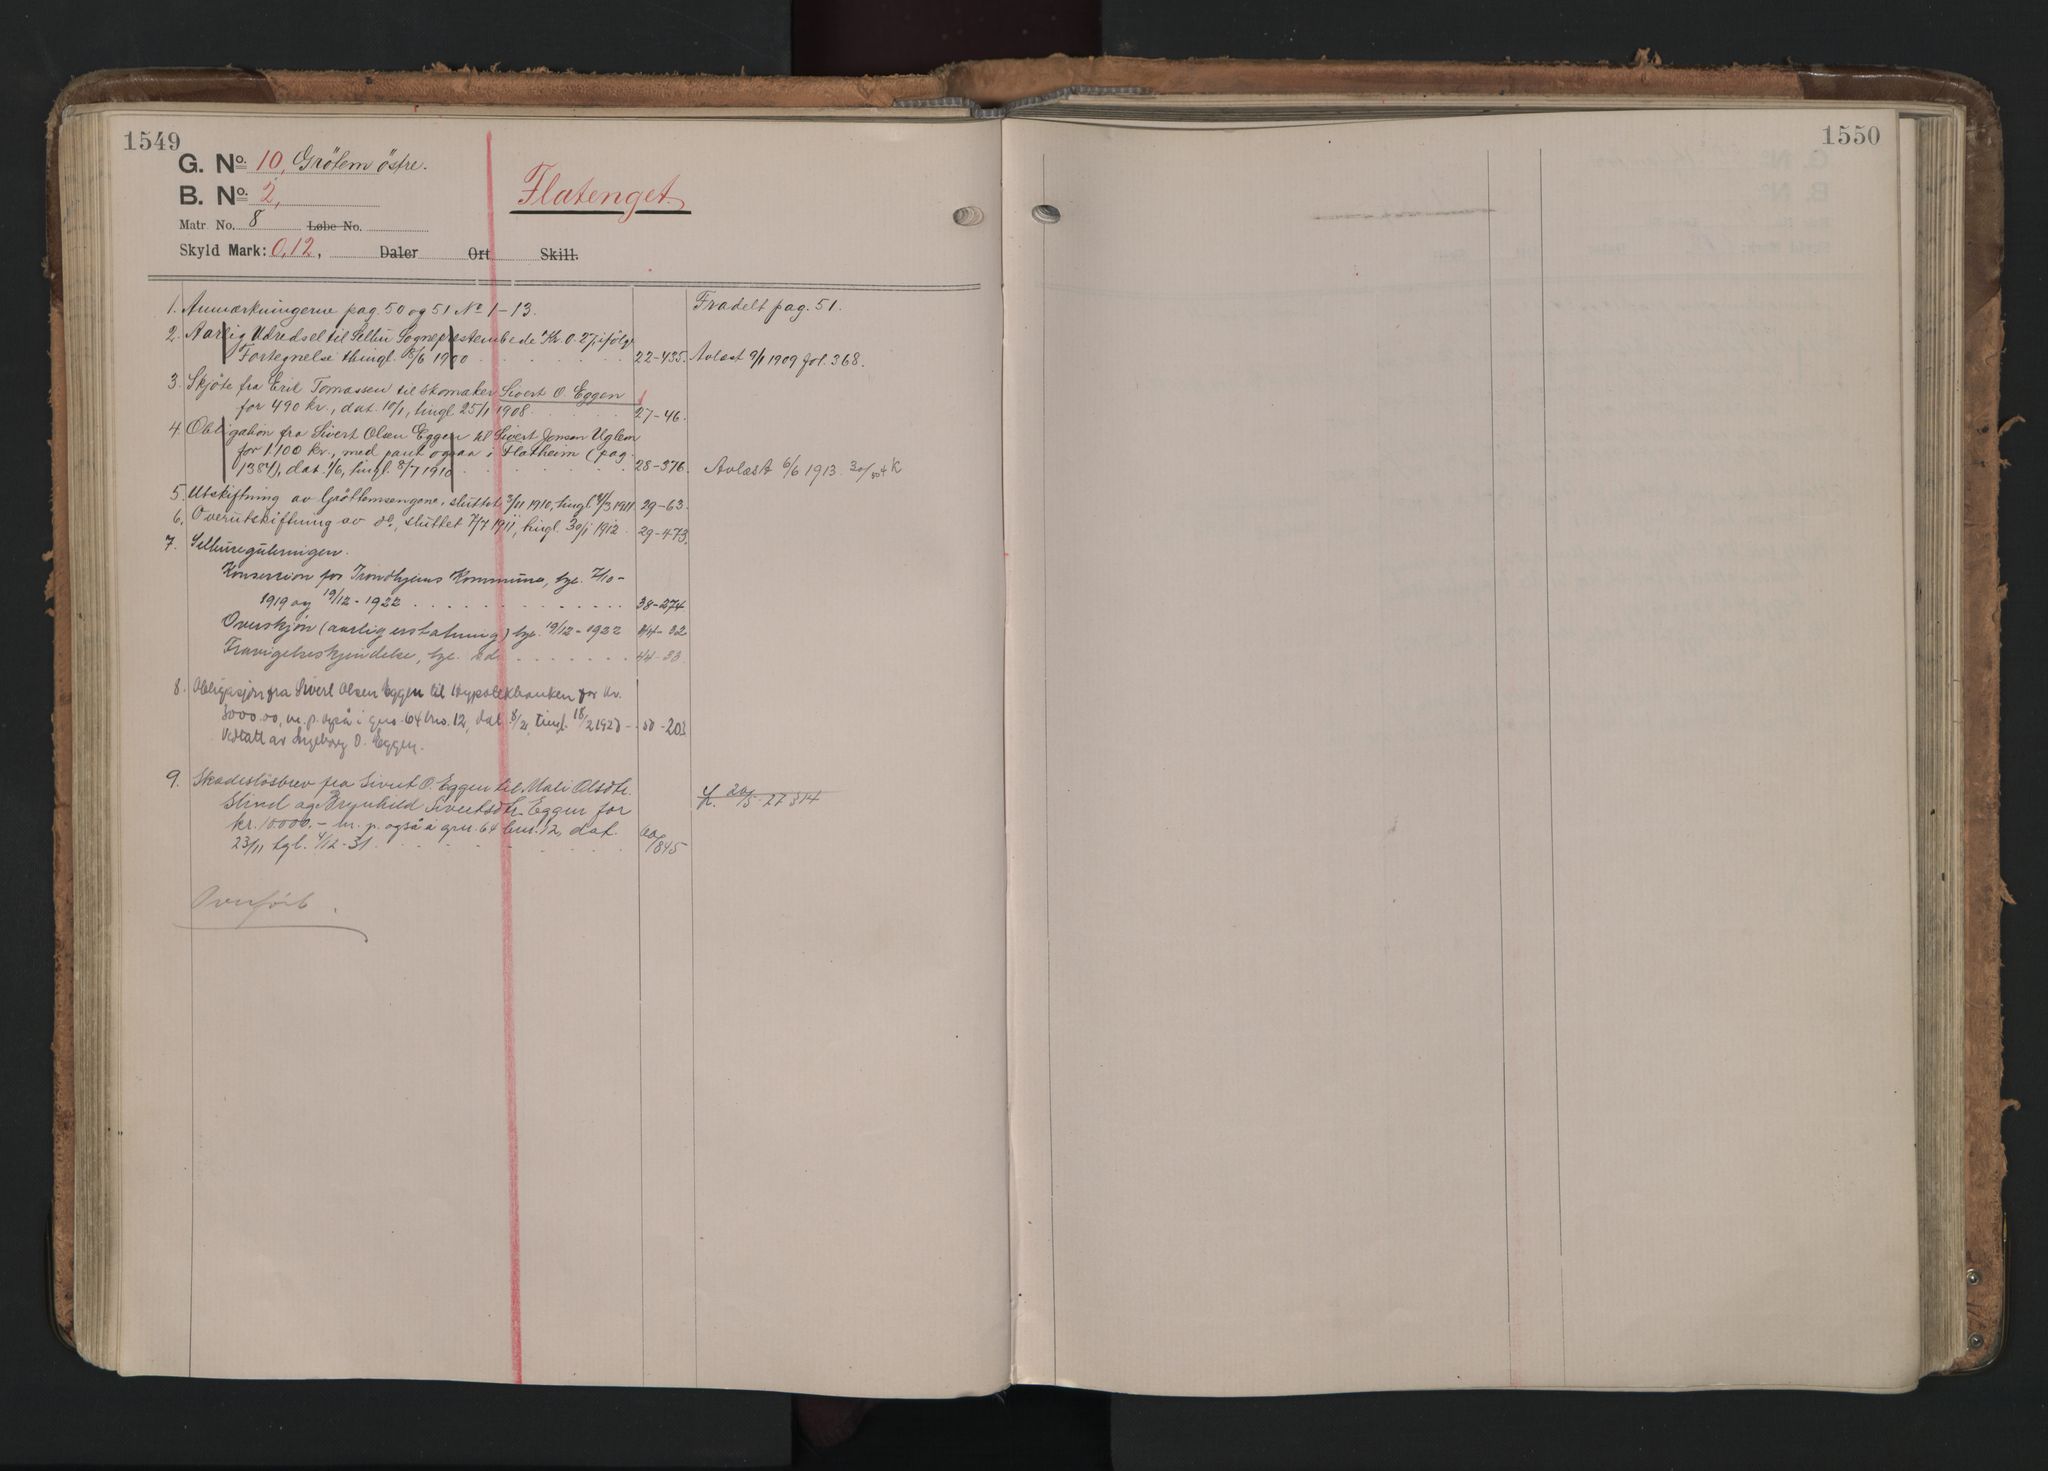 1549
G. No. 10, Grötem östre.
B. No. 2,
Flatenget.
Matr No. 8 Løbe No.
Skyld Mark: 0,12, Daler Ort Skill.
1. Anmærkningerne pag. 50 og 51 No 1-13. Fradelt pag. 51.
2. Aarlig Udredsel til Selbu Sogneprestembede Kr. 0.27, ifölge
Fortegnelse thingl. 8/6 1900 22-435. Avlæst 9/1 1909 fol. 368.
3. Skjöte fra Eril Tomassen til Skomaker Sivert O. Eggen
for 490 kr., dat. 10/1, tingl 25/1 1908. 27-46.
4. Obligation fra Sivert Olsen Eggen til Sivert Jonsen Uglem
for 1100 kr., med pant ogsaa i Flatheim (pag.
1384), dat. 1/6, tingl. 8/7 1910 28-376. Avlæst 6/6 1913.
5. Utskiftning av Gröttemsengene, sluttet 3/11 1910, tingl. 4/3 1911 29-63.
6. Overutskiftning av do., sluttet 7/7 1911, tingl. 30/1 1912. 29-473.
7. Selbureguleringen.
Konsesion for Trondhjems Kommune, tgl. 7/10-
1919 og 19/12-1922 38-274
Overskjön (aarlig erstatning) tgl. 19/12-1922 44-32
Fravigelseskjendelse, tgl. s.d. 44-33.
8. Obligasjon fra Sivert Olsen Eggen til Hypotekbanken for kr.
3000.00, m. p. også i gno. 64 bno. 12, dat. 8/2, tingl. 18/2 1920 - 50-203
Vedtatt av Ingeborg O. Eggen.
9. Skadeslösbrev fra Sivert O. Eggen til Mali Olsdtr.
Slind og Brynhild Sivertsdtr. Eggen for
kr. 10000.- m. p. også i gnr. 64 bnr. 12, dat.
23/11 tgl. 4/12-31. 60/845
20/5-27 314
Overført.
1550